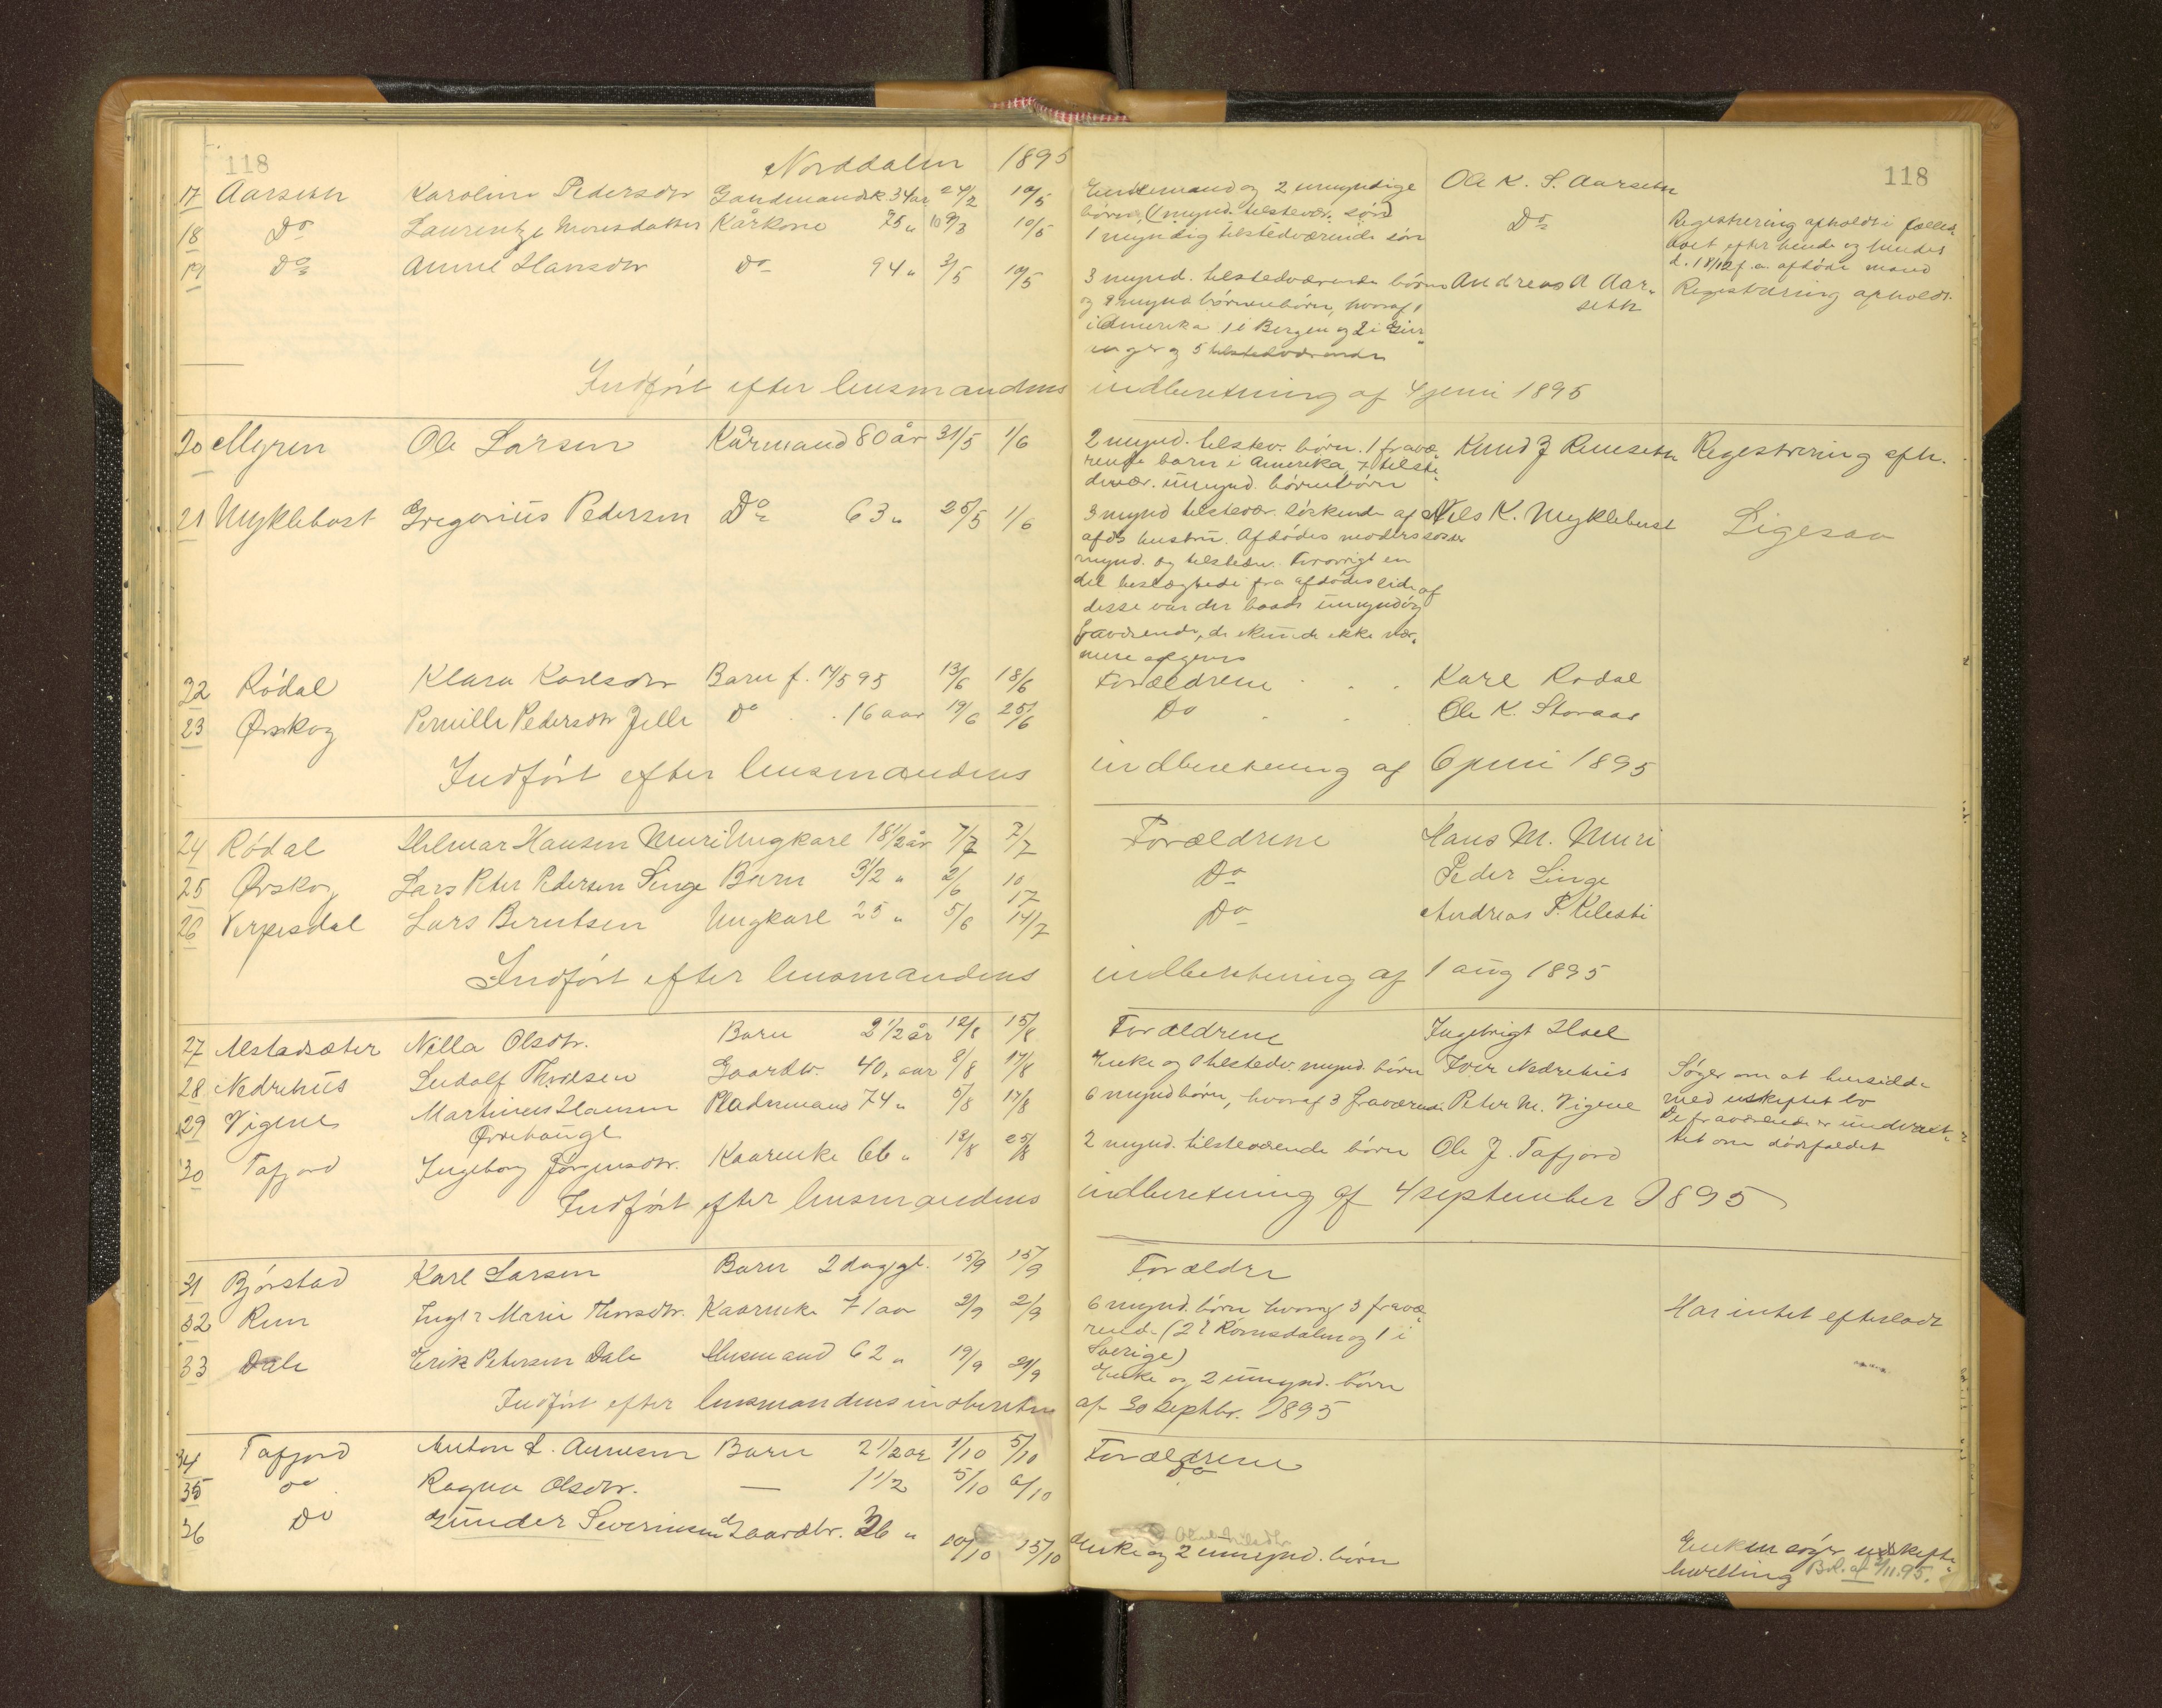 118 Norddalen 1895 118
17 Aarseth Karoline Pedersdtr Gaardmandsk. 34 aar 24/2 10/5 Enkemand og 2 umyndige Ole K. S. Aarseth
børn, (1 mynd. tilstedv. søn)
18 Do Laurentze Monsdatter Kårkone 75 " 9/3 10/5 1 myndig tilstedværende søn Do Registrering afholdt i fælles-
boet efter hende og hendes
d. 18/12 f. a. afdøde mand
19 Do Anne Hansdtr Do 94 " 3/5 10/5 3 mynd. tilstedværende børn Andreas A Aar- Registrering afholdt.
og 9 mynd børnebørn, hvoraf 1 seth
i Amerika 1 i Bergen og 2 i Gei-
ranger og 5 tilstedværende
Indført efter lensmandens indberetning af 4 juni 1895
20 Myren Ole Larsen Kårmand 80 år 31/5 1/6 2 mynd. tilstev. børn. 1 fravæ- Knud J Remseth Registrering afh.
rende barn i Amerika, 7 tilste-
dvær. umynd. børnebørn
21 Myklebost Gregorius Pedersen Do 63 " 25/5 1/6 3 mynd tilstevær. søskende af Nils K. Myklebust Ligesaa
afds hustru. Afdødes moders søster
mynd. og tilstedv. Forøvrigt en
del beslægtede fra afdødes side af
disse var der baade umyndig
fraværende, de kunde ikke nær-
mere opgives
22 Rødal Klara Karlsdtr Barn f. 14/5 95 13/6 18/6 Forældrene Karl Rødal
23 Ørskog Pernille Pedersdtr Jelle Do 16 aar 19/6 25/6 Do Ole K. Storaas
Indført efter lensmandens indberetning af 6 juni 1895
24 Rødal Hilmar Hansen Muri Ungkarl 18 1/2 år 7/7 Forældrene Hans M. Muri
25 Ørskog Lars Peter Pedersen Linge Barn 3 1/2 " 2/6 10 17 Do Peder Linge
26 Verpesdal Lars Berntsen Ungkarl 25 " 5/6 14/7 Do Andreas P. Kilsti
Indført efter lensmandens indberetning af 1 aug 1895
27 Alstadsæter Nilla Olsdtr. Barn 2 1/2 år 12/8 15/8 Forældrene Ingebrigt Hoel
28 Nedrehus Ludolf Thoresen Gaardbr. 40, aar 8/8 17/8 Enke og 8 tilstedv. mynd. børn Iver Nedrehus Søger om at hensidde
29 Vigene Martinus Hansen Pladsmand 74 " 5/8 17/8 6 mynd børn, hvoraf 3 fraværende Peter M. Vigene med uskiftet bo
Øvrehauge De fraværende er underret-
30 Tafjord Ingeborg Jørgensdtr. Kaarenke 66 " 12/8 25/8 2 mynd. tilsteværende børn Ole J. Tafjord tet om dødsfaldet
Indført efter lensmandens indberetning af 4 september 1895
31 Bjørstad Karl Larsen Barn 2 dag gl. 15/9 15/9 Forældre
32 Rem Inger Marie Thorsdtr. Kaarenke 71 aar 2/9 2/9 6 mynd. børn hvoraf 3 fravæ Har intet efterladt
rend. (2 i Romsdalen og 1 i
Sverige)
33 Dale Erik Petersen Dale Husmand 62 " 19/9 21/9 Enke og 2 umynd. børn
Indført efter lensmandens indberetn af 30 septbr. 1895
34 Tafjord Anton L. Arnesen Barn 2 1/2 år 1/10 5/10 Forældrene
35 Do Ragna Olsdtr. — 1 1/2 5/10 6/10 Do
36 Do Gunder Severinsen Gaardbr. 36 " 10/10 15/10 Enke og 2 umynd. børn Enken søger uskifte-
bevilling Bd. af 2/11.95.